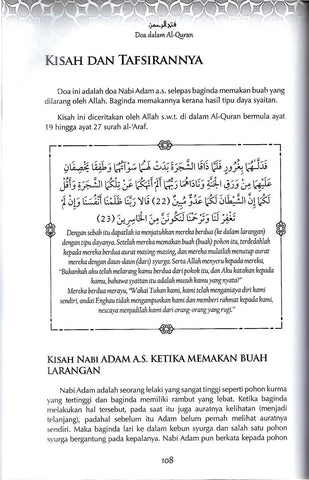 Doa dalam Al-Quran
KISAH DAN TAFSIRANNYA
Doa ini adalah doa Nabi Adam a.s. selepas baginda memakan buah yang
dilarang oleh Allah. Baginda memakannya kerana hasil tipu daya syaitan.
Kisah ini diceritakan oleh Allah s.w.t. di dalam Al-Quran bermula ayat
19 hingga ayat 27 surah al-'Araf.
فَدَلَّاهُمَا بِغُرُورٍ فَلَمَّا ذَاقَا الشَّجَرَةَ بَدَتْ لَهُمَا سَوْآتُهُمَا وَطَفِقَا يَخْصِفَانِ
عَلَيْهِمَا مِنْ وَرَقِ الْجَنَّةِ وَنَادَاهُمَا رَبُّهُمَا أَلَمْ أَنْهَكُمَا عَنْ تِلْكُمَا الشَّجَرَةِ وَأَقُلْ
لَكُمَا إِنَّ الشَّيْطَانَ لَكُمَا عَدُوٌّ مُبِينٌ (22) قَالَا رَبَّنَا ظَلَمْنَا أَنْفُسَنَا وَإِنْ لَمْ
تَغْفِرْ لَنَا وَتَرْحَمْنَا لَنَكُونَنَّ مِنَ الْخَاسِرِينَ (23)
Dengan sebab itu dapatlah ia menjatuhkan mereka berdua (ke dalam larangan)
dengan tipu dayanya. Setelah mereka memakan (buah) pohon itu, terdedahlah
kepada mereka berdua aurat masing-masing, dan mereka mulailah menutup aurat
mereka dengan daun-daun (dari) syurga. Serta Allah menyeru kepada mereka,
"Bukankah aku telah melarang kamu berdua dari pokok itu, dan Aku katakan kepada
kamu, bahawa syaitan itu adalah musuh kamu yang nyata?"
Mereka berdua merayu, "Wahai Tuhan kami, kami telah menganiaya diri kami
sendiri, andai Engkau tidak mengampunkan kami dan memberi rahmat kepada kami,
nescaya menjadilah kami dari orang-orang yang rugi."
KISAH NABI ADAM A.S. KETIKA MEMAKAN BUAH
LARANGAN
Nabi Adam adalah seorang lelaki yang sangat tinggi seperti pohon kurma
yang tertinggi dan baginda memiliki rambut yang lebat. Ketika baginda
melakukan hal tersebut, pada saat itu juga auratnya kelihatan (menjadi
telanjang), padahal sebelum itu Adam belum pernah melihat auratnya
sendiri. Maka baginda lari ke dalam kebun syurga dan salah satu pohon
syurga bergantung pada kepalanya. Nabi Adam pun berkata kepada pohon
108